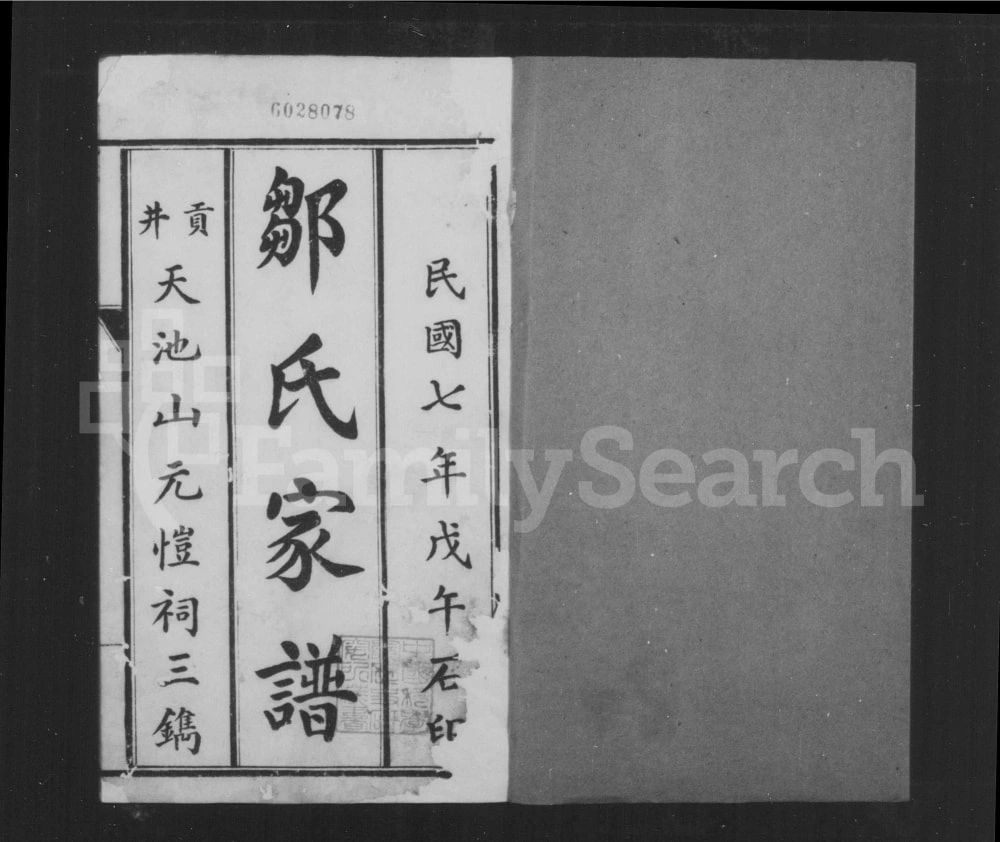 6028078
民國七年戊午石印
鄒氏家譜
貢井
天池山元愷祠三鐫
FamilySearch